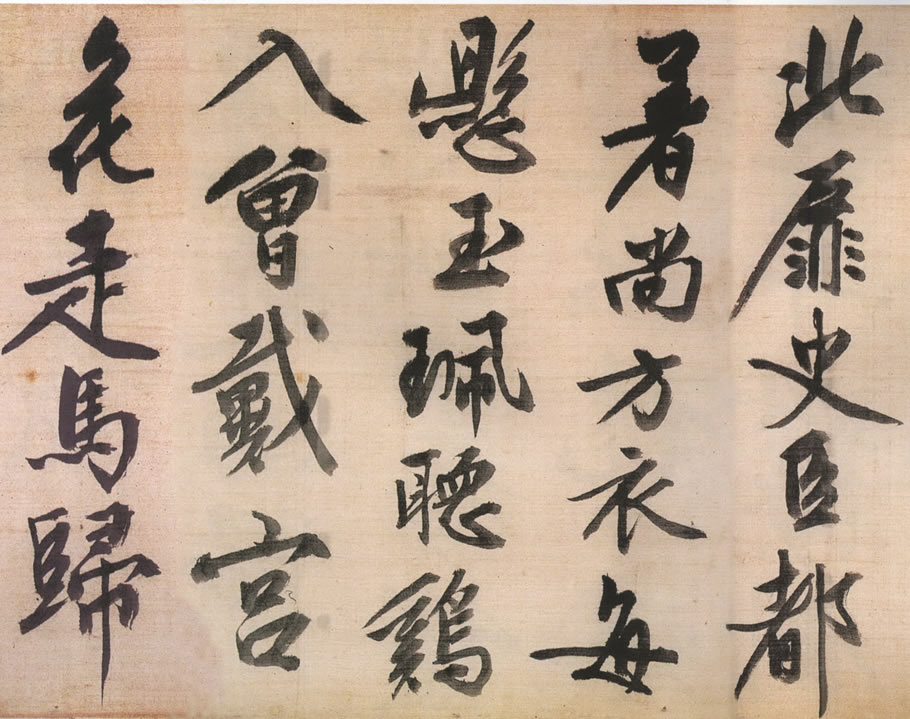 北扉史臣都
著尚方衣每
懸玉珮聽鷄
入曾戴宮
花走馬歸